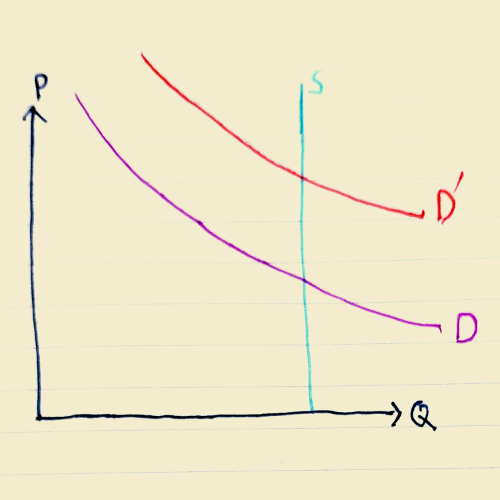 P
S
D′
D
Q